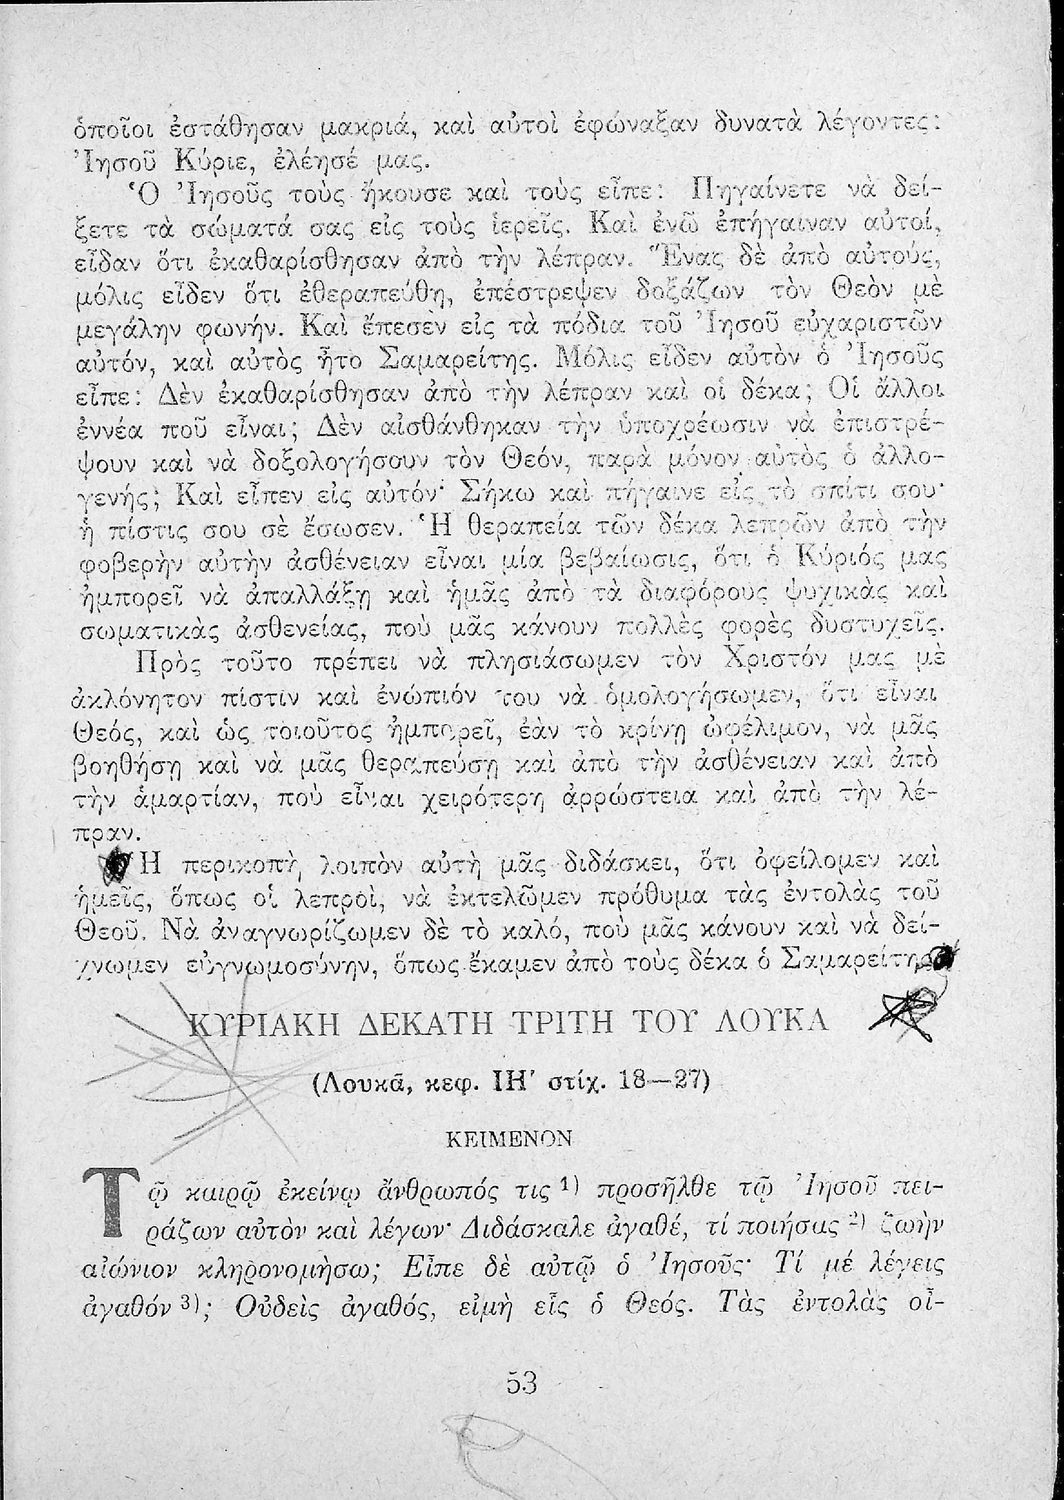 ὁποῖοι ἐστάθησαν μακριά, καὶ αὐτοὶ ἐφώναξαν δυνατὰ λέγοντες:
Ἰησοῦ Κύριε, ἐλέησέ μας.
Ὁ Ἰησοῦς τοὺς ἤκουσε καὶ τοὺς εἶπε: Πηγαίνετε νὰ δεί-
ξετε τὰ σώματά σας εἰς τοὺς ἱερεῖς. Καὶ ἐνῶ ἐπήγαιναν αὐτοί,
εἶδαν ὅτι ἐκαθαρίσθησαν ἀπὸ τὴν λέπραν. Ἕνας δὲ ἀπὸ αὐτούς,
μόλις εἶδεν ὅτι ἐθεραπεύθη, ἐπέστρεψεν δοξάζων τὸν Θεὸν μὲ
μεγάλην φωνήν. Καὶ ἔπεσεν εἰς τὰ πόδια τοῦ Ἰησοῦ εὐχαριστῶν
αὐτόν, καὶ αὐτὸς ἦτο Σαμαρείτης. Μόλις εἶδεν αὐτὸν ὁ Ἰησοῦς
εἶπε: Δὲν ἐκαθαρίσθησαν ἀπὸ τὴν λέπραν καὶ οἱ δέκα; Οἱ ἄλλοι
ἐννέα ποῦ εἶναι; Δὲν αἰσθάνθηκαν τὴν ὑποχρέωσιν νὰ ἐπιστρέ-
ψουν καὶ νὰ δοξολογήσουν τὸν Θεόν, παρὰ μόνον αὐτὸς ὁ ἀλλο-
γενής; Καὶ εἶπεν εἰς αὐτόν· Σήκω καὶ πήγαινε εἰς τὸ σπίτι σου·
ἡ πίστις σου σὲ ἔσωσεν. Ἡ θεραπεία τῶν δέκα λεπρῶν ἀπὸ τὴν
φοβερὴν αὐτὴν ἀσθένειαν εἶναι μία βεβαίωσις, ὅτι ὁ Κύριός μας
ἠμπορεῖ νὰ ἀπαλλάξῃ καὶ ἡμᾶς ἀπὸ τὰ διαφόρους ψυχικὰς καὶ
σωματικὰς ἀσθενείας, ποὺ μᾶς κάνουν πολλὲς φορὲς δυστυχεῖς.
Πρὸς τοῦτο πρέπει νὰ πλησιάσωμεν τὸν Χριστόν μας μὲ
ἀκλόνητον πίστιν καὶ ἐνώπιόν του νὰ ὁμολογήσωμεν, ὅτι εἶναι
Θεός, καὶ ὡς τοιοῦτος ἠμπορεῖ, ἐὰν τὸ κρίνῃ ὠφέλιμον, νὰ μᾶς
βοηθήσῃ καὶ νὰ μᾶς θεραπεύσῃ καὶ ἀπὸ τὴν ἀσθένειαν καὶ ἀπὸ
τὴν ἁμαρτίαν, ποὺ εἶναι χειρότερη ἀρρώστεια καὶ ἀπὸ τὴν λέ-
πραν.
Ἡ περικοπὴ λοιπὸν αὐτὴ μᾶς διδάσκει, ὅτι ὀφείλομεν καὶ
ἡμεῖς, ὅπως οἱ λεπροὶ, νὰ ἐκτελῶμεν πρόθυμα τὰς ἐντολὰς τοῦ
Θεοῦ. Νὰ ἀναγνωρίζωμεν δὲ τὸ καλό, ποὺ μᾶς κάνουν καὶ νὰ δεί-
χνωμεν εὐγνωμοσύνην, ὅπως ἔκαμεν ἀπὸ τοὺς δέκα ὁ Σαμαρείτης
ΚΥΡΙΑΚΗ ΔΕΚΑΤΗ ΤΡΙΤΗ ΤΟΥ ΛΟΥΚΑ
(Λουκᾶ, κεφ. ΙΗ΄ στίχ. 18—27)
ΚΕΙΜΕΝΟΝ
Τῷ καιρῷ ἐκείνῳ ἄνθρωπός τις 1) προσῆλθε τῷ Ἰησοῦ πει-
ράζων αὐτὸν καὶ λέγων· Διδάσκαλε ἀγαθέ, τί ποιήσας 2) ζωὴν
αἰώνιον κληρονομήσω; Εἶπε δὲ αὐτῷ ὁ Ἰησοῦς· Τί μέ λέγεις
ἀγαθόν 3); Οὐδεὶς ἀγαθός, εἰμὴ εἷς ὁ Θεός. Τὰς ἐντολὰς οἶ-
53